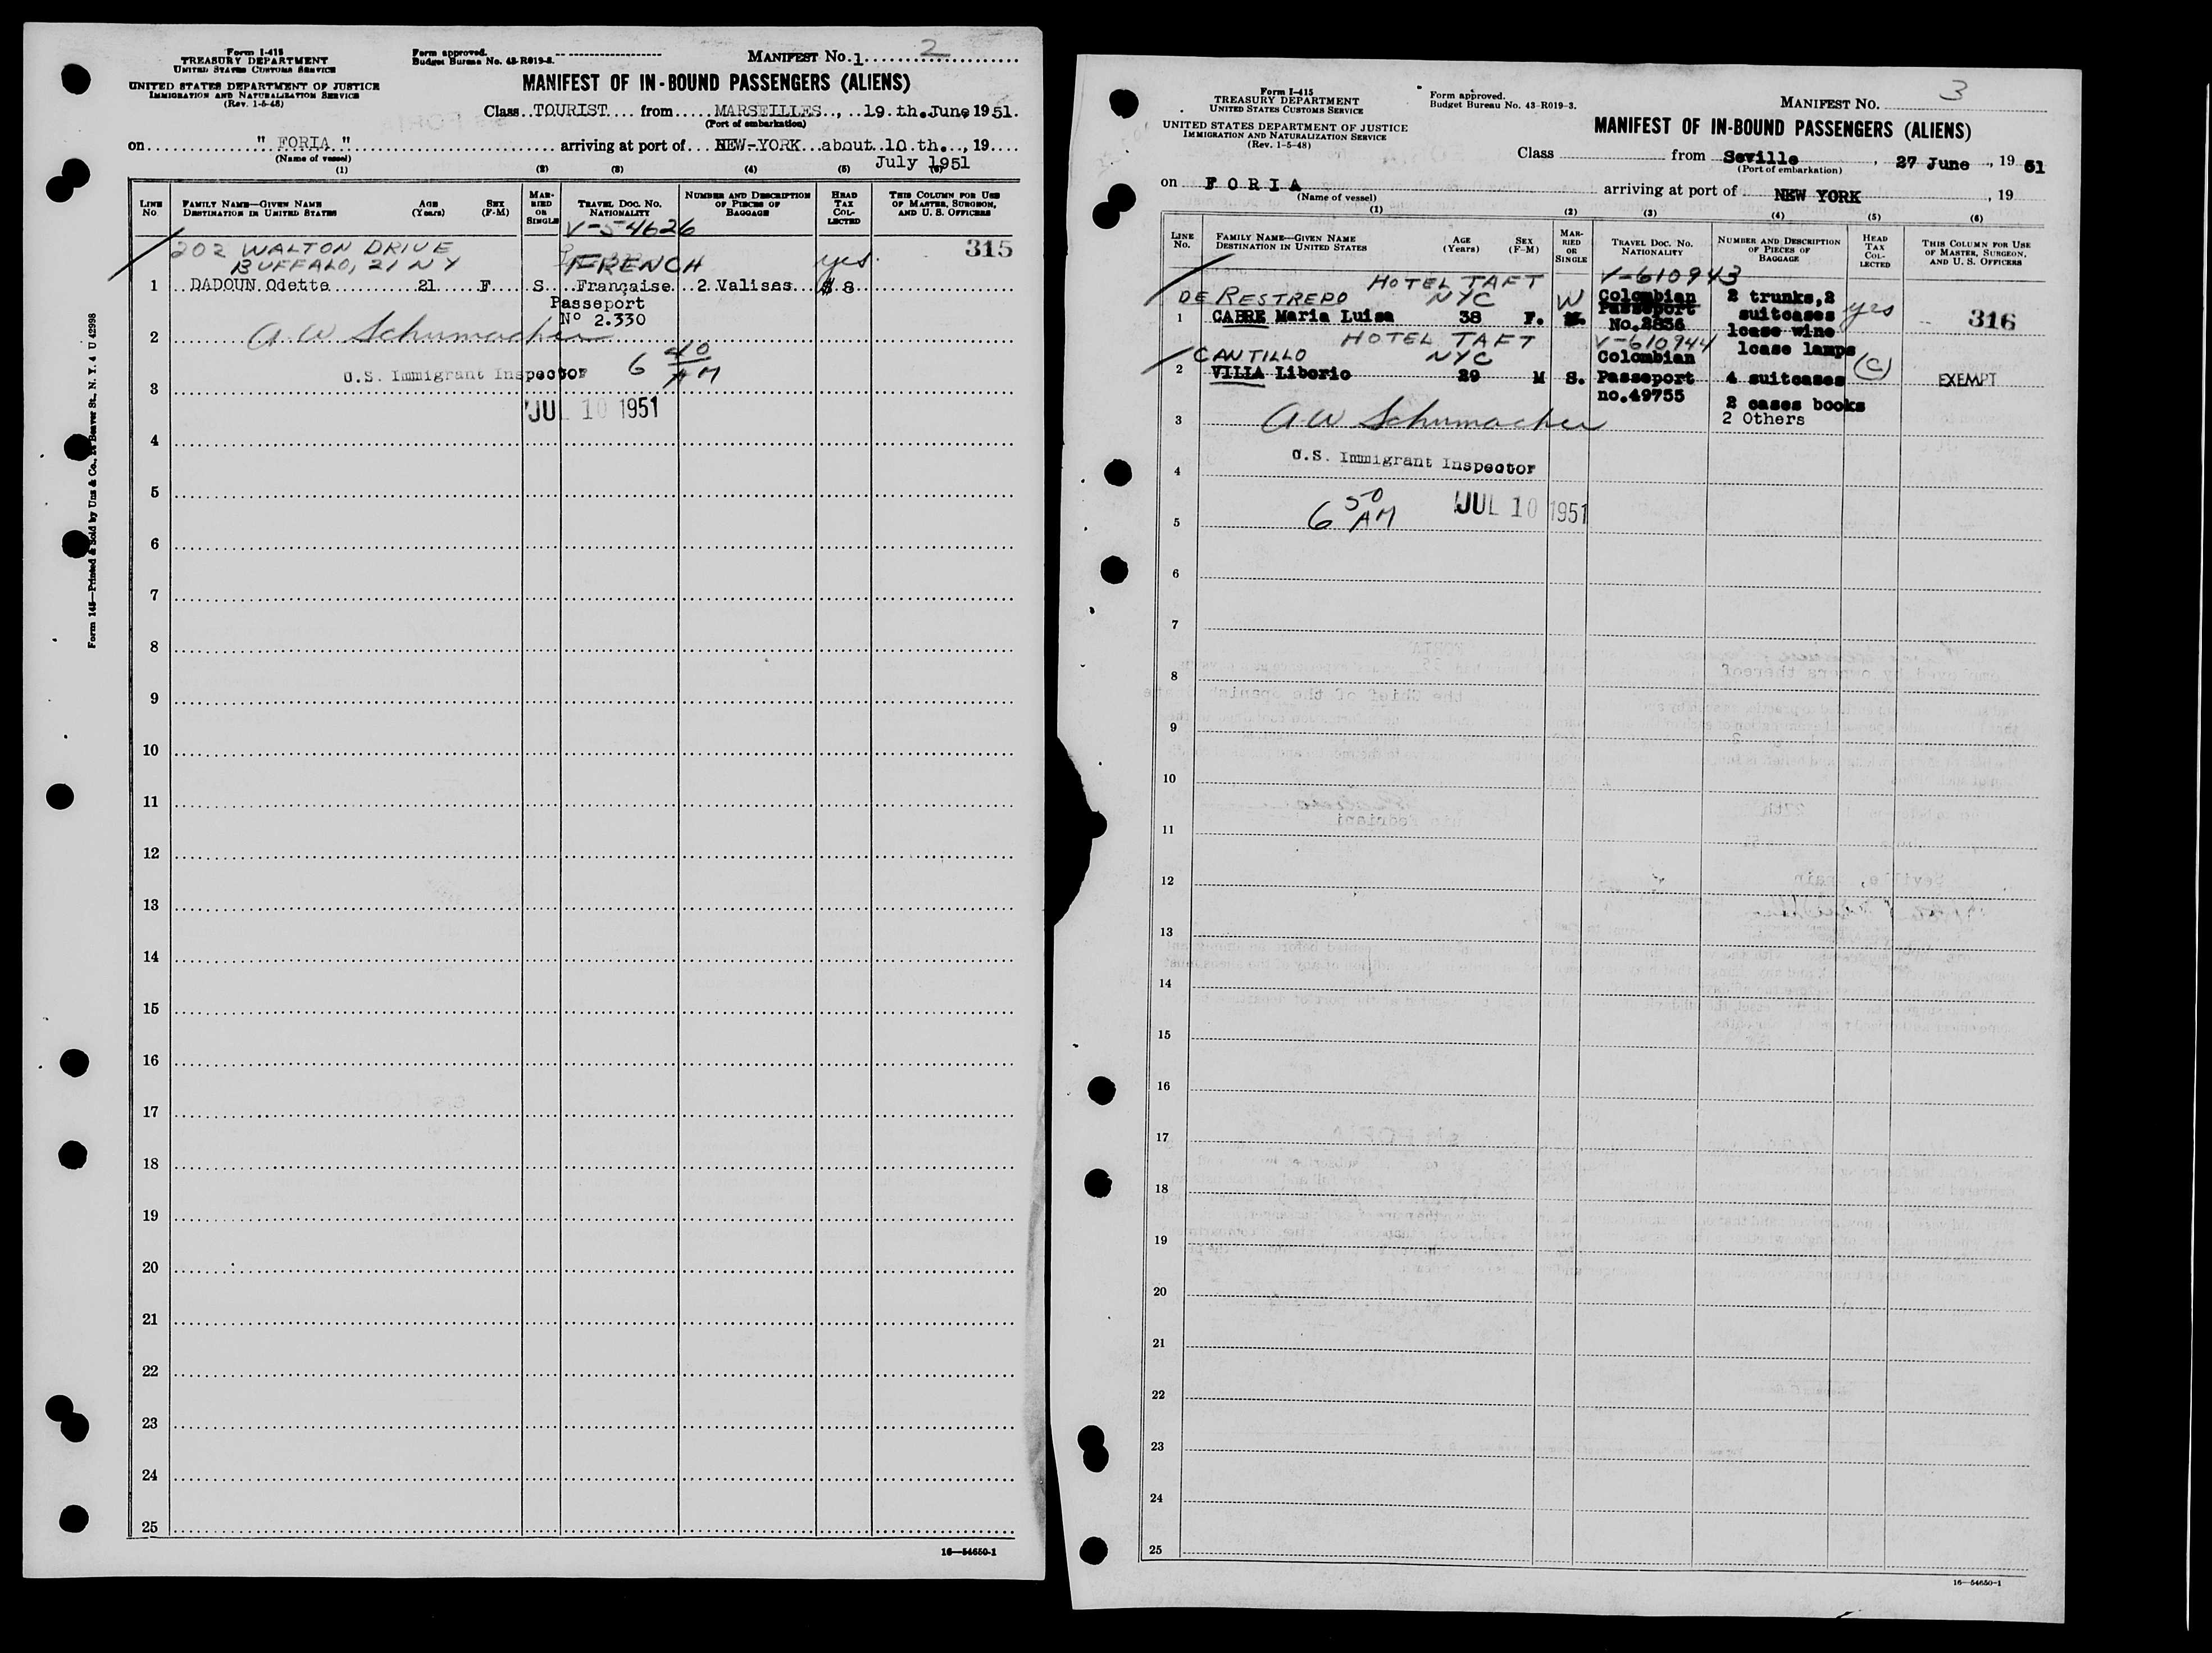 Form I-415
TREASURY DEPARTMENT
UNITED STATES CUSTOMS SERVICE
UNITED STATES DEPARTMENT OF JUSTICE
IMMIGRATION AND NATURALIZATION SERVICE
(Rev. 1-5-48)
Form approved.
Budget Bureau No. 43-R019-3.
MANIFEST No. 1 2
MANIFEST OF IN-BOUND PASSENGERS (ALIENS)
Class TOURIST from MARSEILLES, 19.th.June 1951.
(Port of embarkation)
on " FORIA " arriving at port of NEW-YORK about 10 th., 19
July 1951
(Name of vessel)
(1) (2) (3) (4) (5) (6)
LINE No. FAMILY NAME—GIVEN NAME DESTINATION IN UNITED STATES AGE (Years) SEX (F-M) MARRIED OR SINGLE TRAVEL DOC. No. NATIONALITY NUMBER AND DESCRIPTION OF PIECES OF BAGGAGE HEAD TAX COLLECTED THIS COLUMN FOR USE OF MASTER, SURGEON, AND U. S. OFFICERS
V-54626
202 WALTON DRIVE 315
BUFFALO, 21 NY FRENCH yes.
1 DADOUN Odette 21 F S Française 2 Valises $ 8
Passeport
N° 2.330
2 A W Schumacher
6 40 AM
U.S. Immigrant Inspector
3
JUL 10 1951
4
5
6
7
8
9
10
11
12
13
14
15
16
17
18
19
20
21
22
23
24
25
16—54650-1
Form 145—Printed & Sold by Unz & Co., Beaver St., N. Y. 4 U 42998
Form I-415
TREASURY DEPARTMENT
UNITED STATES CUSTOMS SERVICE
UNITED STATES DEPARTMENT OF JUSTICE
IMMIGRATION AND NATURALIZATION SERVICE
(Rev. 1-5-48)
Form approved.
Budget Bureau No. 43-R019-3.
MANIFEST No. 3
MANIFEST OF IN-BOUND PASSENGERS (ALIENS)
Class from Seville, 27 June, 19 51
(Port of embarkation)
on FORIA arriving at port of NEW YORK, 19
(Name of vessel)
(1) (2) (3) (4) (5) (6)
LINE No. FAMILY NAME—GIVEN NAME DESTINATION IN UNITED STATES AGE (Years) SEX (F-M) MARRIED OR SINGLE TRAVEL DOC. No. NATIONALITY NUMBER AND DESCRIPTION OF PIECES OF BAGGAGE HEAD TAX COLLECTED THIS COLUMN FOR USE OF MASTER, SURGEON, AND U. S. OFFICERS
HOTEL TAFT V-610943
DE RESTREPO NYC W Colombian 2 trunks,2
Passeport suitcases yes
1 CABRE Maria Luisa 38 F. No.2836 1case wine 316
HOTEL TAFT V-610944 1case lamps
CANTILLO NYC Colombian (C)
2 VILLA Liborio 29 M S. Passeport 4 suitcases EXEMPT
no.49755 2 cases books
3 A W Schumacher 2 Others
U.S. Immigrant Inspector
4
6 50 AM JUL 10 1951
5
6
7
8
9
10
11
12
13
14
15
16
17
18
19
20
21
22
23
24
25
16—54650-1